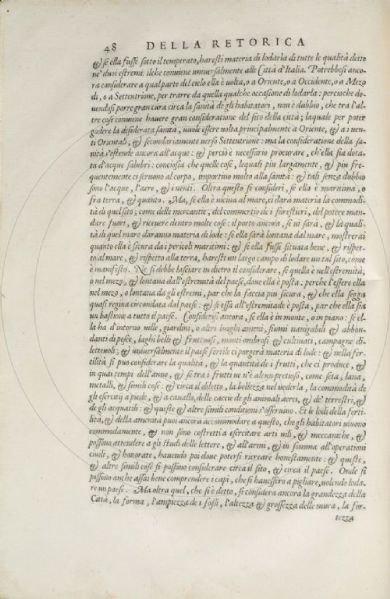 48 DELLA RETORICA
& si ella fusse sito il temperato, haresti materia di lodarla di tutte le qualità dette
ne' dui estremi. ilche conuiene uniuersalmente alle Città d'Italia. Potrebbesi anco-
ra considerare a qual parte del cielo ella è uolta, o a Oriente, o a Occidente, o a Mezo
dì, o a Settentrione, per trarre da quella qualche occasione di lodarla: percioche do-
uendosi porre gran cura circa la sanità de gli habitatori, non è dubbio, che tra l'al-
tre cose conuiene hauere gran consideratione del sito della città; laquale per poter
godere la desiderata sanità, uuole essere uolta principalmente a Oriente, & a i uen-
ti Orientali, & secondariamente uerso Settentrione: ma la consideratione della sa-
nità s'estende ancora all'acque: & perciò è necessario procurare, ch'ella sia dota-
ta d'acque salubri: conciosia che quelle cose, lequali piu largamente, & piu fre-
quentemente ci seruono al corpo, importino molto alla sanità: & tali senza dubbio
sono l'acque, l'aere, & i uenti. Oltra questo si consideri, se ella è maritima, o
fra terra, & quanto. Ma, se ella è uicina al mare, ci dara materia la commodi-
tà di quel sito; come delle mercantie, del commertio de i forestieri, del potere manda-
re fuori, & riceuere dentro molte cose: il porto ancora, se ui sarà, & la quali-
tà di quel mare daranno materia di lode: se ella sarà lontana dal mare, mostrerai
quanto ella è sicura da i pericoli maritimi: & se ella fusse situata bene, & rispet-
to al mare, & rispetto alla terra, haresti un largo campo di lodare un tal sito, come
è manifesto. Ne si debbe lasciare in dietro il considerare, se quella è nell'estremità,
o nel mezo, o lontana dall'estremità del paese, doue ella è posta: perche l'essere ella
nel mezo, o lontana da gli estremi, par che la faccia piu sicura, & che ella segga
quasi regina circondata dal paese: & se ella all'estremità è posta, par che ella sia
un bastione a tutto il paese. Considerisi ancora, se ella è in monte, o in piano: se el-
la ha d'intorno uille, giardini, o altri luoghi ameni, fiumi nauigabili & abbon-
danti de pesce, laghi belli & fruttuosi, monti ombrosi & cultiuati, campagne di-
letteuoli; & uniuersalmente il paese fertile ci porgerà materia di lode: & nella fer-
tilità si può considerare la qualità, & la quantità de i frutti, che ci produce, &
in quai tempi dell'anno, & se tra i frutti ue n'è alcun pretioso, come seta, lana,
metalli, & simili cose: & circa il diletto, la bellezza nel uederla, la commodità de
gli esercitij a piede, & a cauallo, delle caccie de gli animali aerei, & de' terrestri, &
de gli acquatili: & queste & altre simili conditioni s'osseruano. Et le lodi della ferti-
lità, & della amenità puoi ancora accommodare a questo, che gli habitatori uiuono
commodamente, & non sono costretti a esercitare arti uili, & meccaniche, &
possino attendere a gli studi delle lettere, & all'armi, & in summa all'operationi
ciuili, & honorate, hauendo poi doue potersi ricreare honestamente: & queste,
& altre simili cose si possino considerare circa il sito, & circa il paese. Onde si
possino anche assai bene comprendere i capi, che si hauessero a pigliare, uolendo loda-
re un paese. Ma oltra quel, che si è detto, si considera ancora la grandezza della
Città, la forma, l'ampiezza de i fossi, l'altezza & grossezza delle mura, la for-
tezza